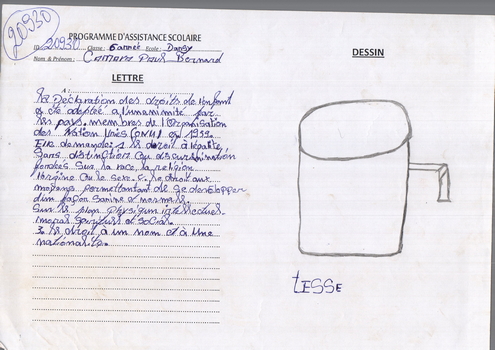 20930
PROGRAMME D'ASSISTANCE SCOLAIRE
ID 20930 Classe 6 année Ecole Dangy
Nom & Prénom: CAMARA Paul Bernard
LETTRE
1:
la Déclaration des droits de l'enfant
a été adoptée à l'unanimité par
les pays membres de l'Organisation
des Nation Unies (ONU) en 1959.
Elle demande 1 le droit à l'égalité
Sans distinction ou discrimination
fondées sur la race, la religion
l'origine ou le sexe. 2. le droit aux
moyens permettant de se développer
d'un façon saine et normale.
Sur le plan physique intellectuel.
Spirituel et Social.
3. le droit à un nom et à une
nationalité.
DESSIN
tESSE